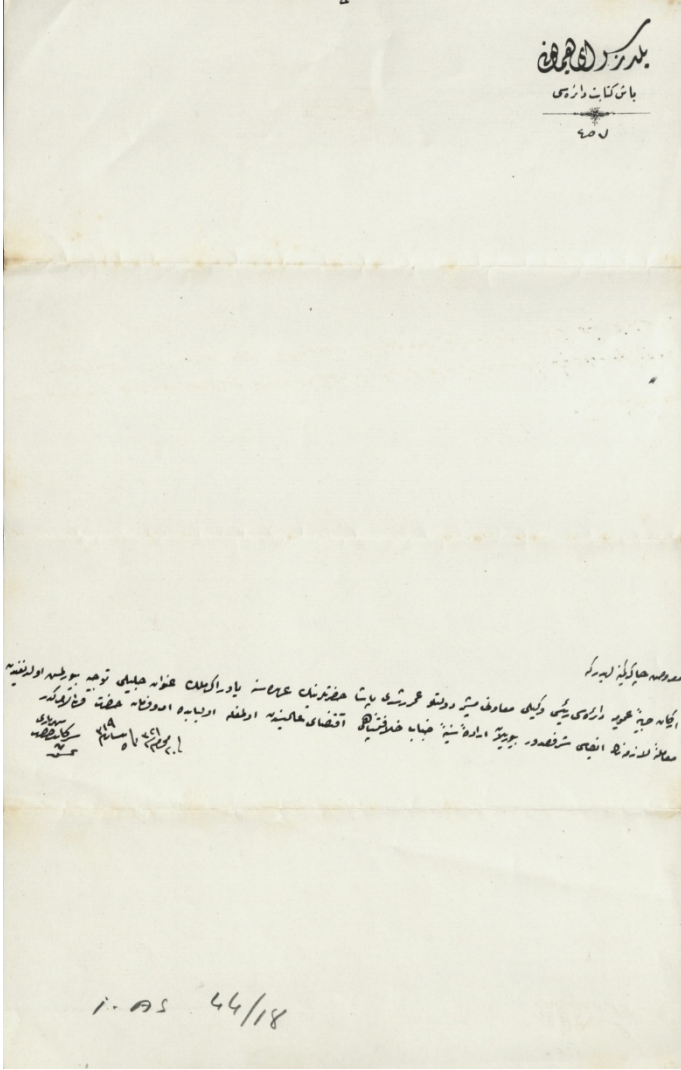 يلديز سراى همايونى
باش كتابت دائره سى
٤٥٧
معروض چاكر كمينه لريدر كه
اركان حربيهٔ عموميه دائره سى رئيسى وكيلى معاونى مشير دولتلو عمر رشدى پاشا حضرتلرينك عهده سنه ياور اكرملك عنوان جليلى توجيه بيورلمش اولديغندن
معاملهٔ لازمه نك ايفاسى شرفصدور بيوريلان ارادهٔ سنيهٔ جناب خلافتپناهى اقتضاى عاليسندن اولمغله اولبابده امر وفرمان حضرت ولى الامركدر
سر كاتب حضرت شهريارى
İ. AS 44/18